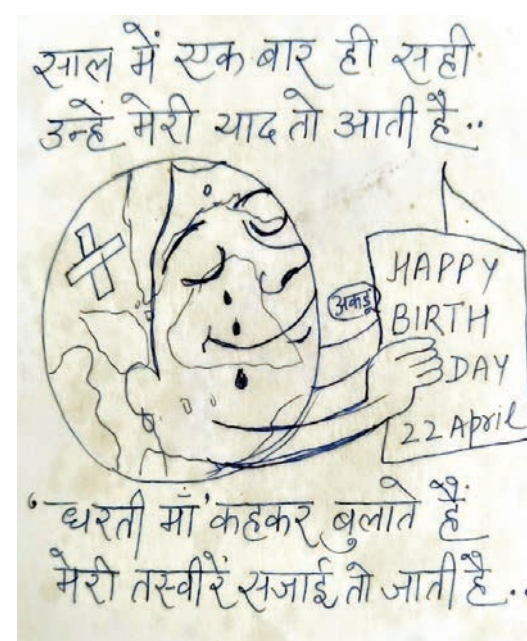 साल में एक बार ही सही
उन्हें मेरी याद तो आती है..
अकडू
HAPPY
BIRTH
DAY
22 April
'धरती माँ' कहकर बुलाते हैं
मेरी तस्वीरें सजाई तो जाती है..